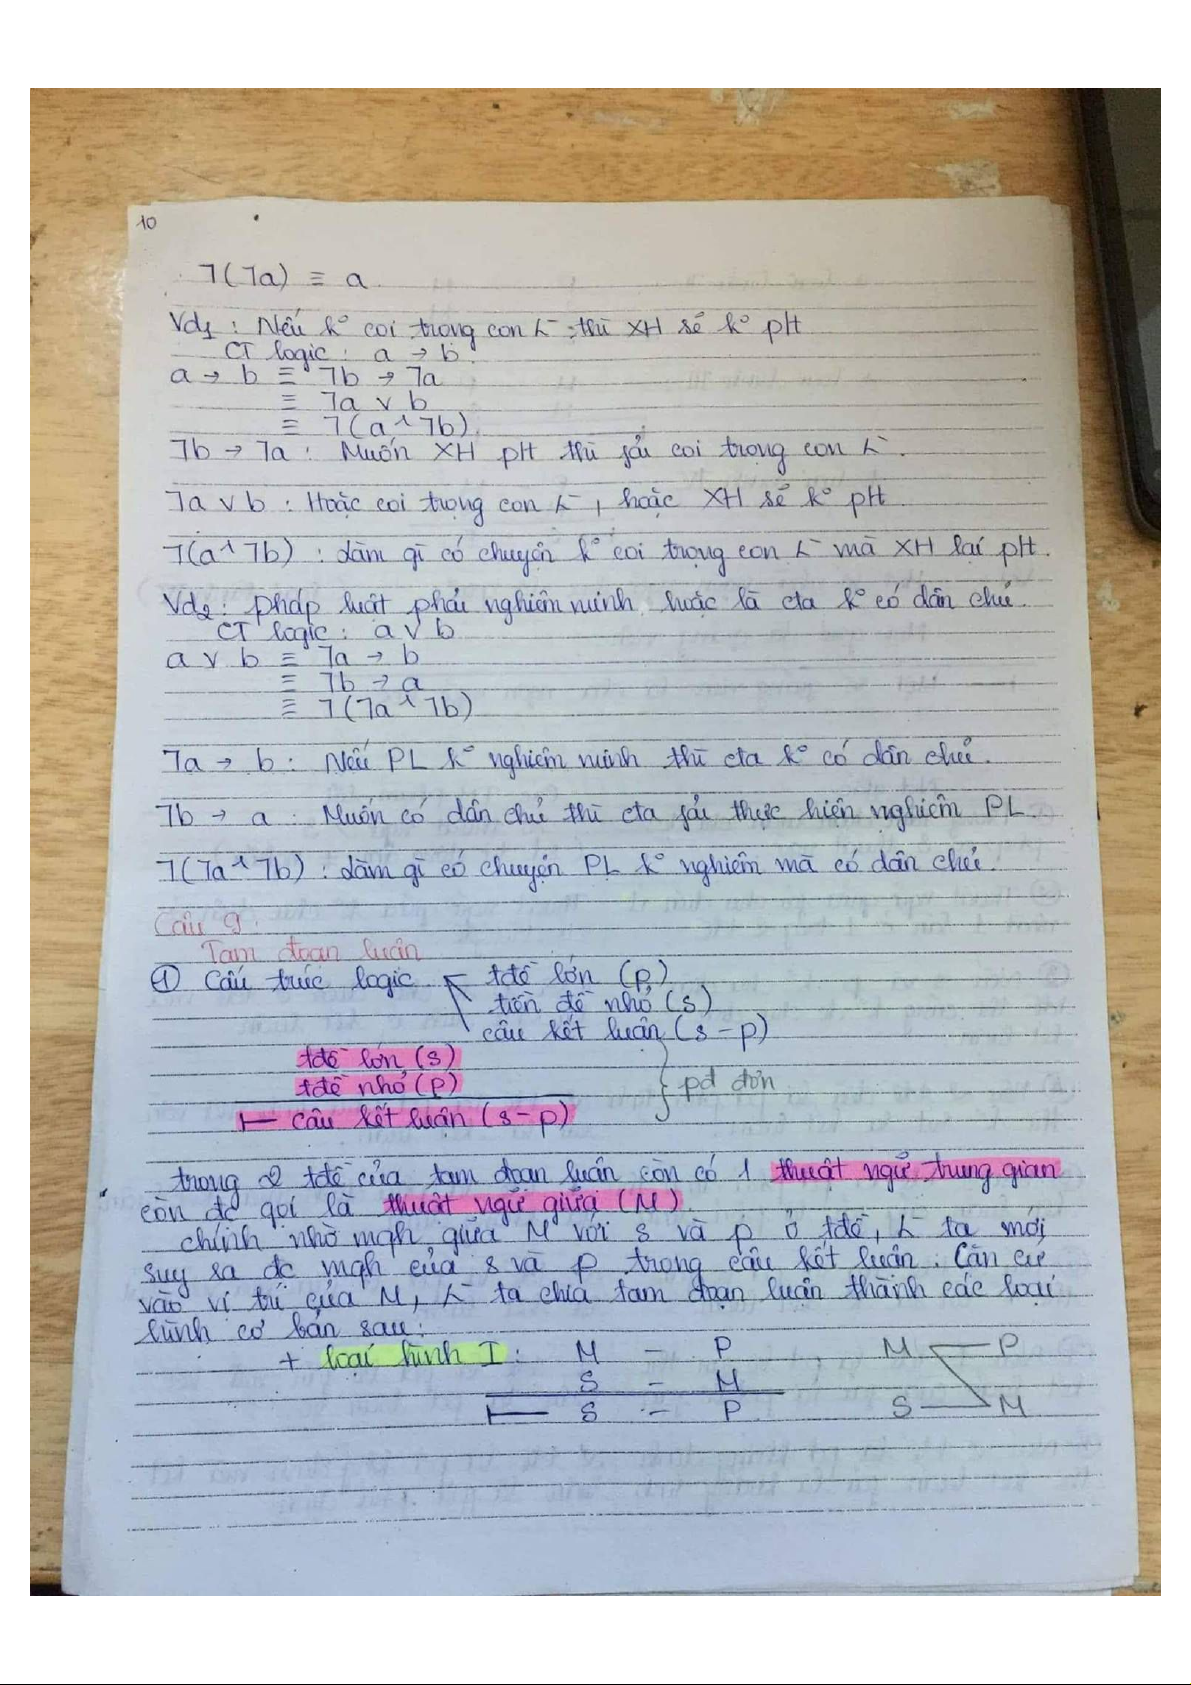 10
ꓶ(ꓶa) ≡ a
Vd1 : Nếu k° coi trọng con L⁻ thì XH sẽ k° pH
CT logic : a → b
a → b ≡ ꓶb → ꓶa
≡ ꓶa ∨ b
≡ ꓶ(a ^ ꓶb)
ꓶb → ꓶa : Muốn XH pH thì fải coi trọng con L⁻.
ꓶa ∨ b : Hoặc coi trọng con L⁻, hoặc XH sẽ k° pH
ꓶ(a ^ ꓶb) : làm gì có chuyện k° coi trọng con L⁻ mà XH lại pH.
Vd2 : pháp luật phải nghiêm minh hoặc là cta k° có dân chủ.
CT logic : a ∨ b
a ∨ b ≡ ꓶa → b
≡ ꓶb → a
≡ ꓶ(ꓶa ^ ꓶb)
ꓶa → b : Nếu PL k° nghiêm minh thì cta k° có dân chủ.
ꓶb → a : Muốn có dân chủ thì cta fải thực hiện nghiêm PL.
ꓶ(ꓶa ^ ꓶb) : làm gì có chuyện PL k° nghiêm mà có dân chủ.
Câu 9.
Tam đoạn luận
① Cấu trúc logic tđề lớn (p)
tiền đề nhỏ (s)
câu kết luận (s - p)
tđề lớn (s)
tđề nhỏ (p) pđ đơn
⊢ câu kết luận (s - p)
trong 2 tđề của tam đoạn luận còn có 1 thuật ngữ trung gian
còn đc gọi là thuật ngữ giữa (M)
chính nhờ mqh giữa M với s và p ở tđề, L⁻ ta mới
suy ra đc mqh của s và p trong câu kết luận. Căn cứ
vào vị trí của M, L⁻ ta chia tam đoạn luận thành các loại
hình cơ bản sau:
+ loại hình I : M - P M P
S - M
⊢ S - P S M